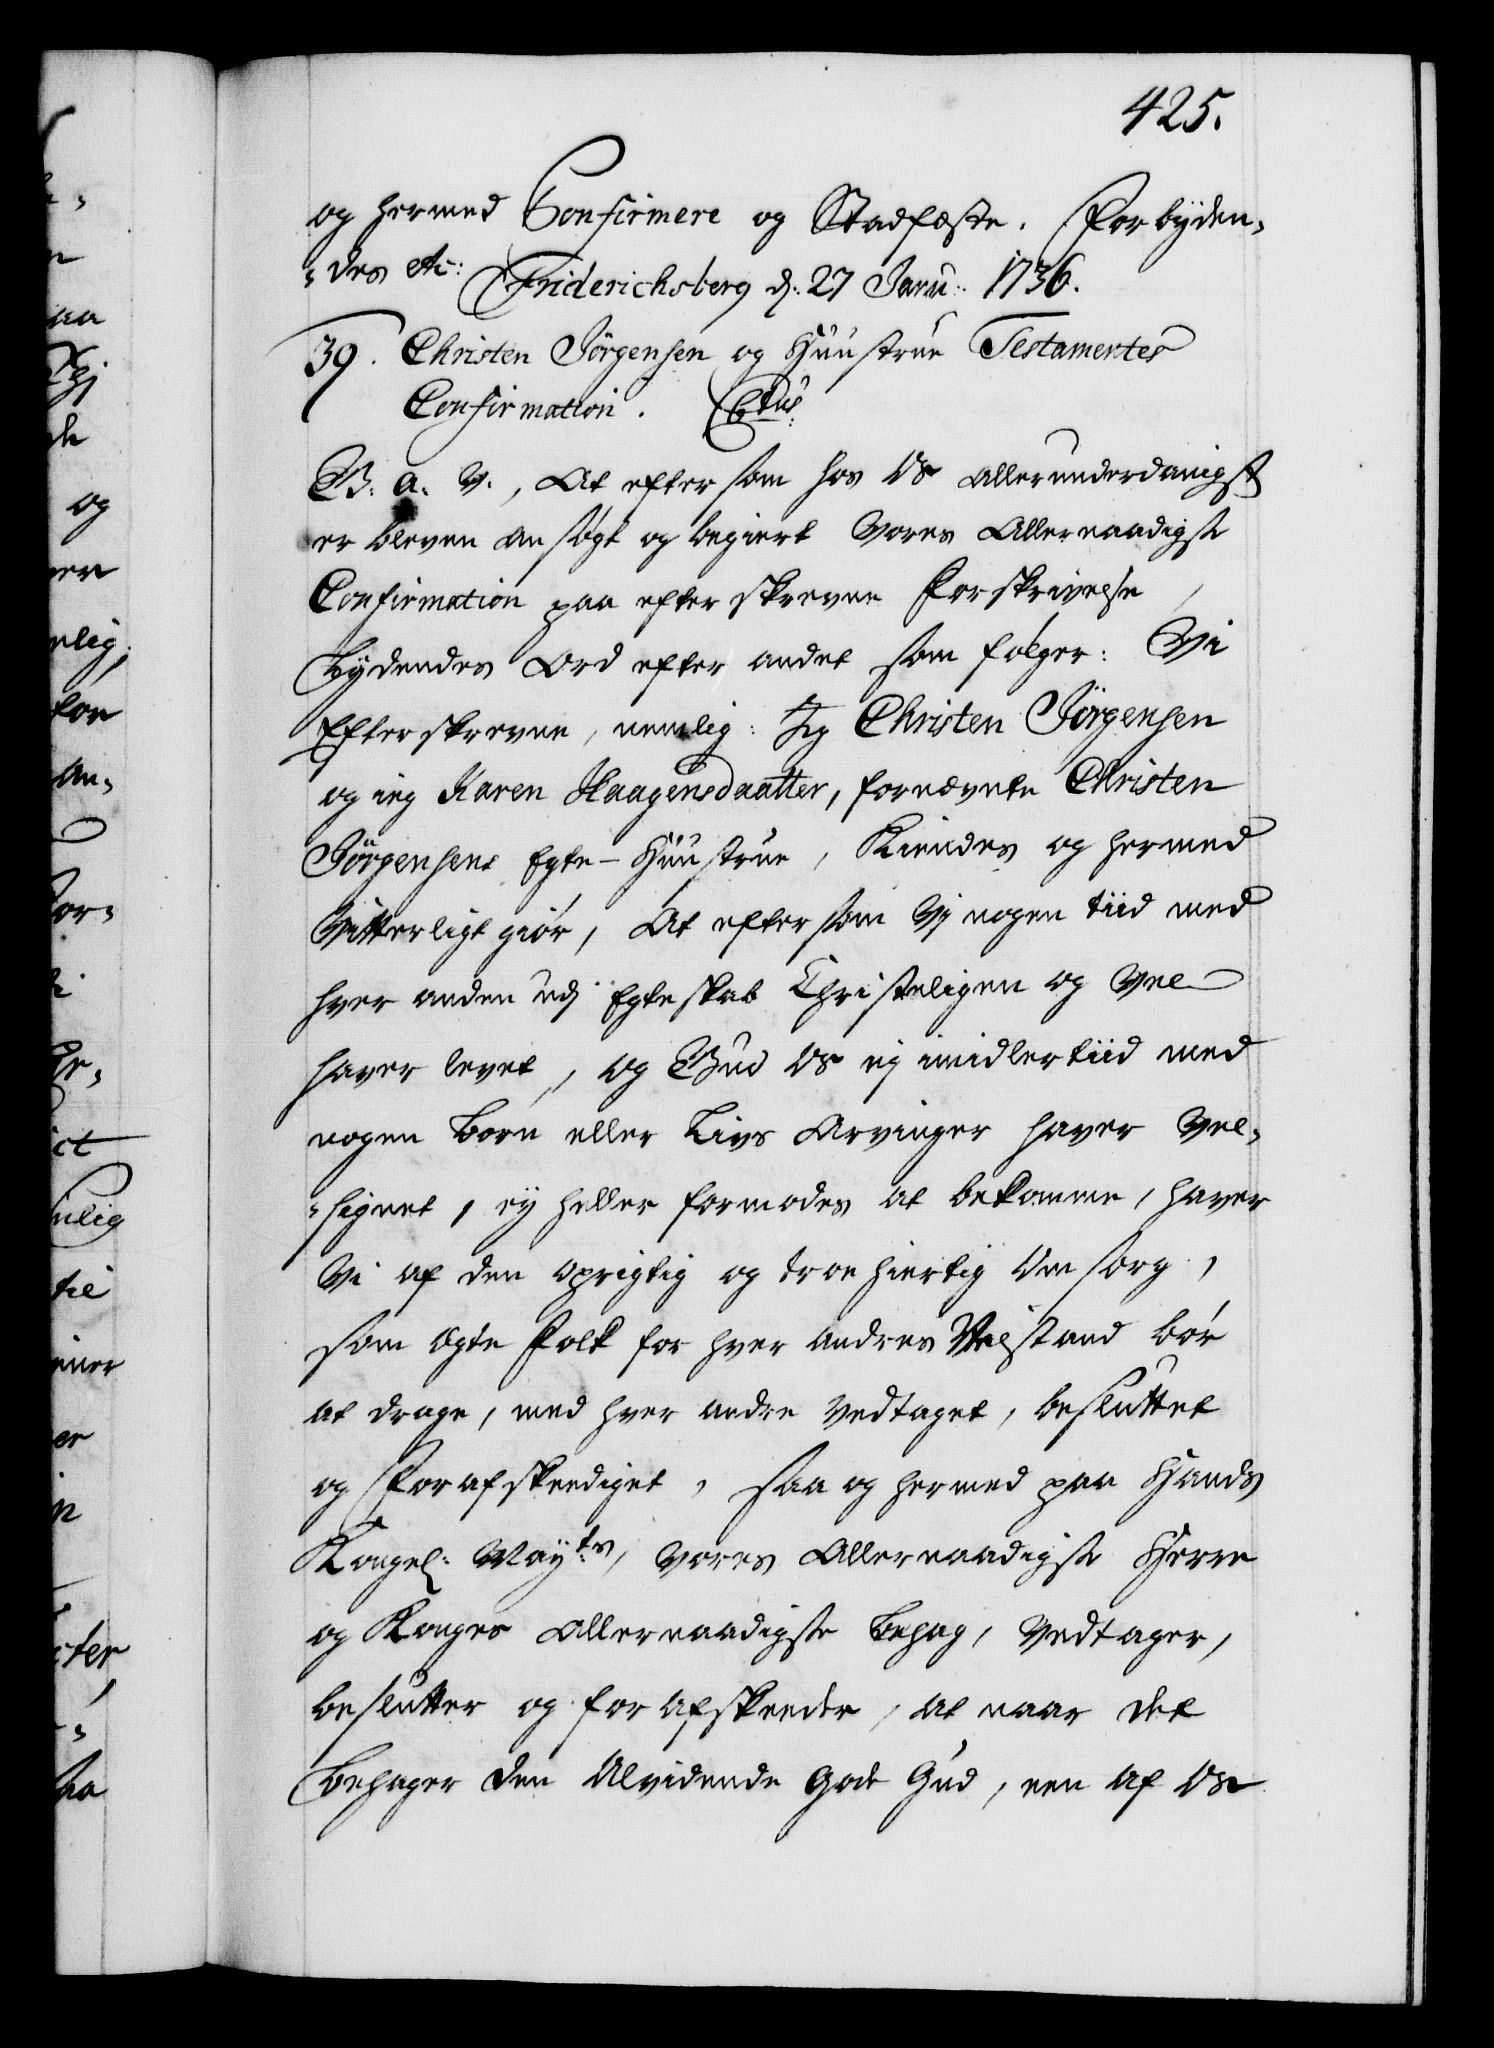 425.
og hermed Confirmere og Stadfæste. Forbyden-
-des etc: Friderichsberg d: 27 Janu: 1736.
39. Christen Jörgensen og Huustrue Testamentes
Confirmation. Ctus
G. a. V., At eftersom hos Os allerunderdanigst
er bleven ansøgt og begiert Vores Allernaadigste
Confirmation paa efterskrevne Forskrivelse,
Lydendes Ord efter andet som følger: Vi
Efterskrevne, nemlig: Jeg Christen Jörgensen
og ieg Karen Haagensdaatter, fornævnte Christen
Jörgensens Egte-Huustrue, Kiendes og hermed
Vitterligt giør, At eftersom Vj nogen tiid med
hver anden udj Egteskab Christeligen og Vel
haver levet, og Gud Os ej imidlertiid med
nogen Børn eller Livs Arvinger haver Vel-
-signet, ey heller formodes at bekomme, haver
Vi af den oprigtig og troehiertig Omsorg,
som Egte Folk for hver andres Velstand bør
at drage, med hver andre vedtaget, besluttet
og Forafskeediget, saa og hermed paa Hands
Kongel: Mayts, Vores Allernaadigste Herre
og Konges Allernaadigste Behag, Vedtager,
beslutter og forafskeeder, at naar det
behager den Alvidende Gode Gud, een af Os